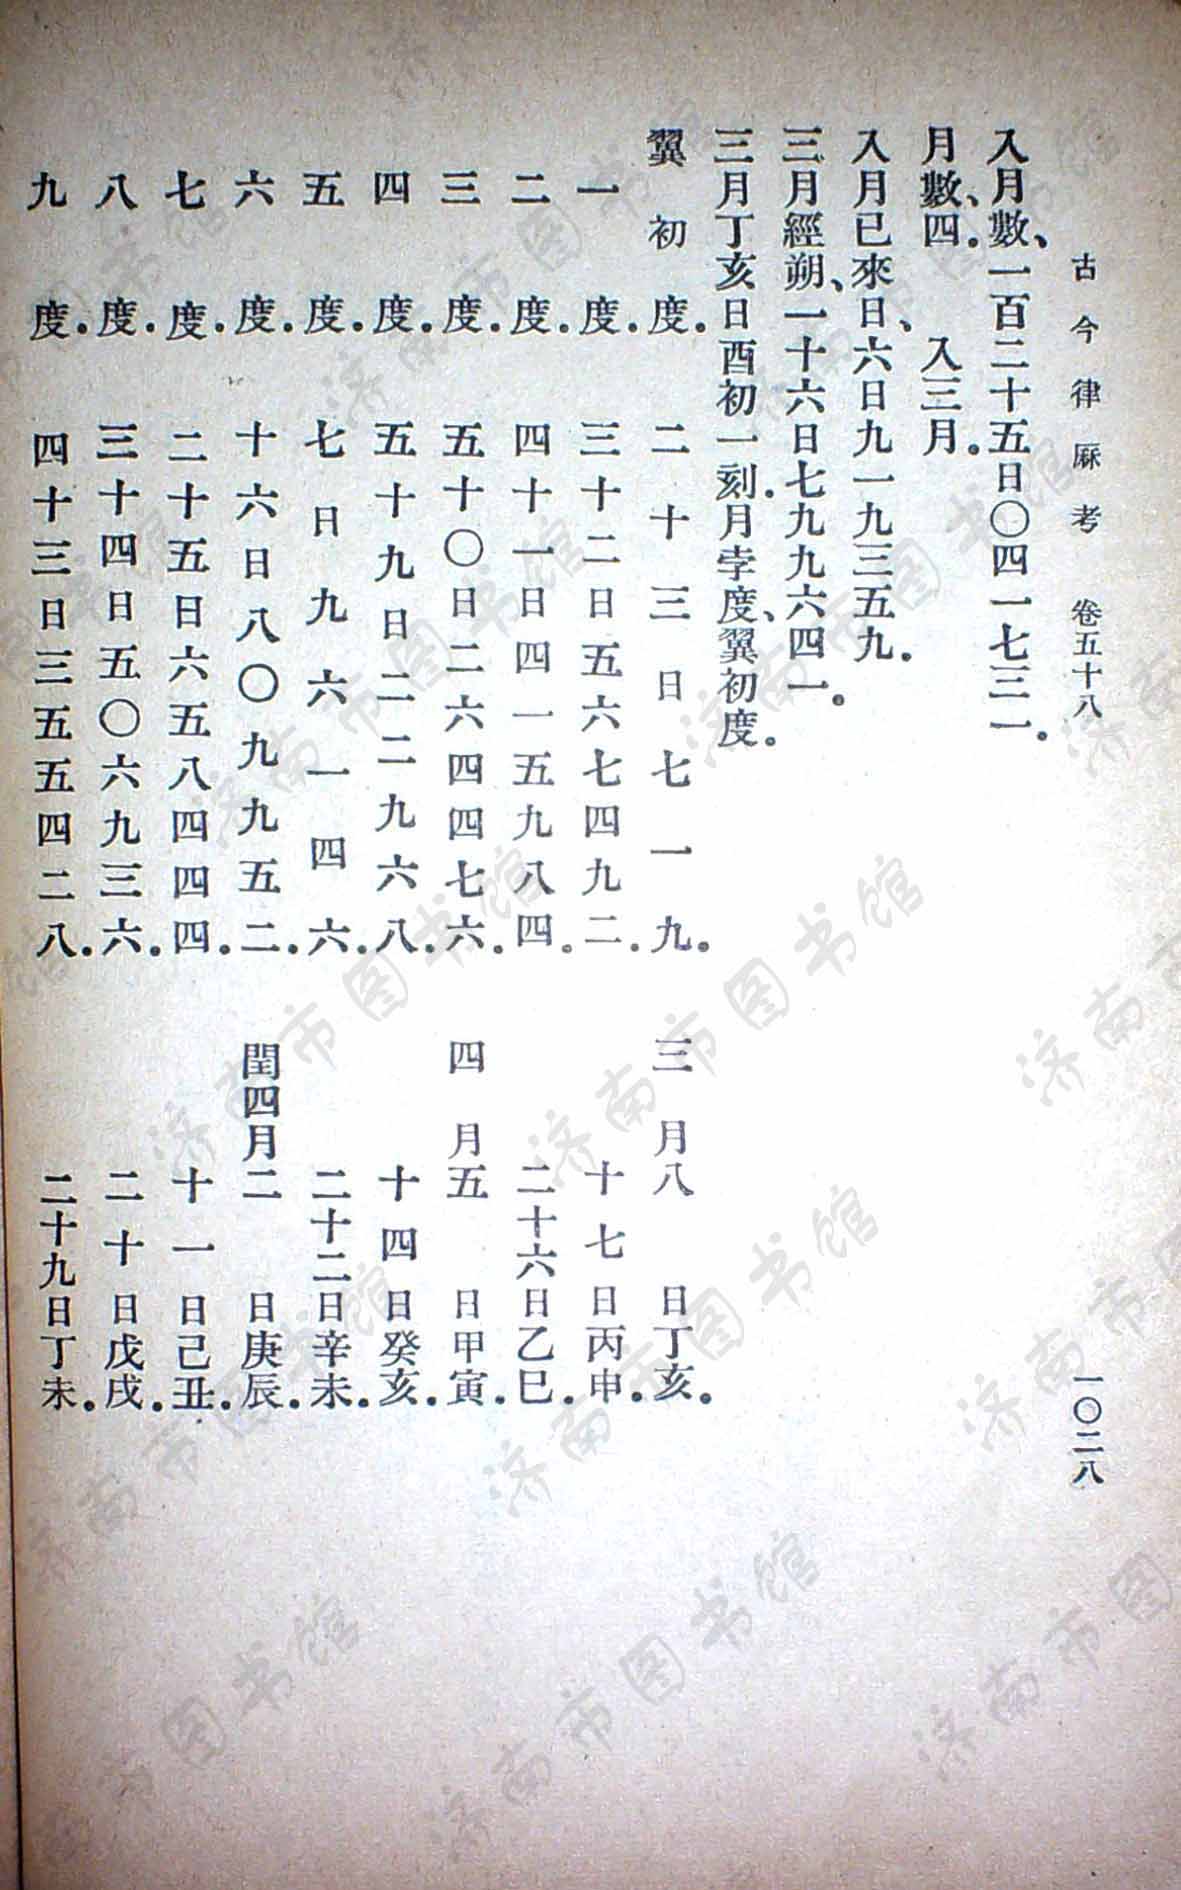 古今律厤考　卷五十八　一〇二八
入月數、一百二十五日〇四一七三一。
月數、四。　入三月。
入月已來日、六日九一九三五九。
三月經朔、一十六日七九九六四一。
三月丁亥日酉初一刻．月孛度、翼初度。
翼初度．　二十三日七一九．　三月八日丁亥．
一度．　三十二日五六七四九二．　十七日丙申．
二度．　四十一日四一五九八四．　二十六日乙巳．
三度．　五十〇日二六四四七六．　四月五日甲寅．
四度．　五十九日二二九六八．　十四日癸亥．
五度．　七日九六一四六．　二十二日辛未．
六度．　十六日八〇九九五二．　閏四月二日庚辰．
七度．　二十五日六五八四四四．　十一日己丑．
八度．　三十四日五〇六九三六．　二十日戊戌．
九度．　四十三日三五五四二八．　二十九日丁未．
济南市图书馆